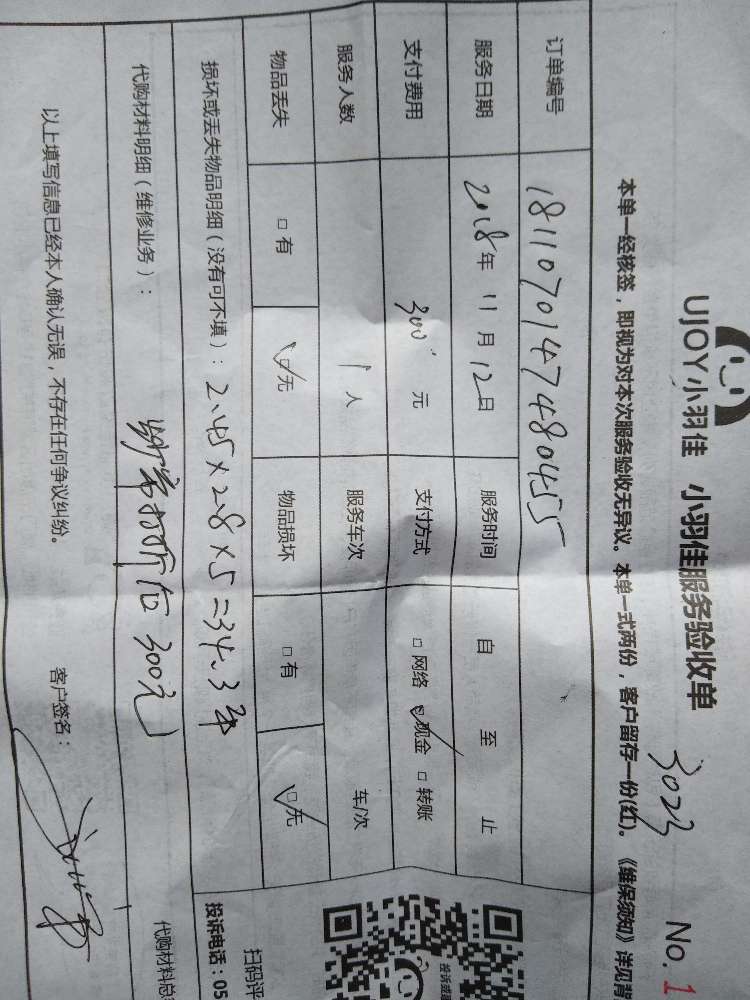 UJOY小羽佳 小羽佳服务验收单
3023 No.1
本单一经核签，即视为对本次服务验收无异议。本单一式两份，客户留存一份(红)。《维保须知》详见背
订单编号 181107014748 0455
服务日期 2018年 11月 12日 服务时间 自 至 止
支付费用 300 元 支付方式 □网络 ☑现金 □转账
服务人数 1人 服务车次 车/次
物品丢失 □有 ☑无 物品损坏 □有 ☑无
损坏或丢失物品明细（没有可不填）：2.45×2.8×5=34.3
代购材料明细（维修业务）： 后300元
以上填写信息已经本人确认无误，不存在任何争议纠纷。 客户签名：
扫码评
投诉电话：05
代购材料总